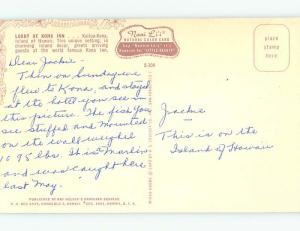 LOBBY AT KONA INN
Kailua-Kona,
Island of Hawaii. This unique setting, in
charming island decor, greets arriving
guests at the world famous Kona Inn.
Nani Li'i
NATURAL COLOR CARD
S-309
place
stamp
here
Dear Jackie -
Then on Sunday we
flew to Kona, and stayed
at the hotel you see in
this picture. The fish you
see stuffed and mounted
on the wall weighed
1095 lbs. It is Marlin
and was caught here
last May.
Jackie
This is on the
Island of Hawaii
PUBLISHED BY RAY HELBIG'S HAWAIIAN SERVICE
P. O. BOX 2835, HONOLULU 3, HAWAII